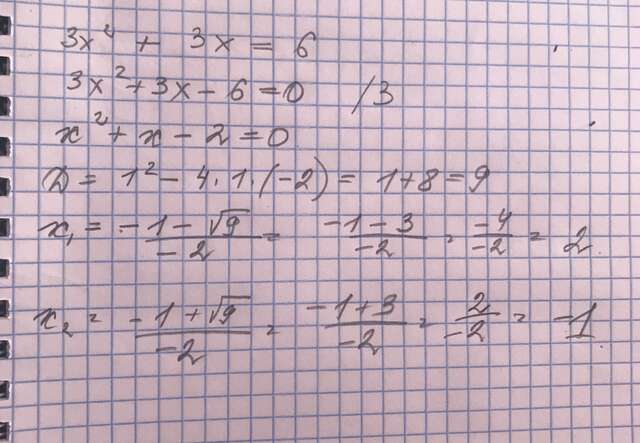 3x² + 3x = 6
3x² + 3x - 6 = 0 /3
x² + x - 2 = 0
D = 1² - 4 · 1 · (-2) = 1 + 8 = 9
x₁ = (-1 - √9)/(-2) = (-1 - 3)/(-2) = (-4)/(-2) = 2
x₂ = (-1 + √9)/(-2) = (-1 + 3)/(-2) = 2/(-2) = -1